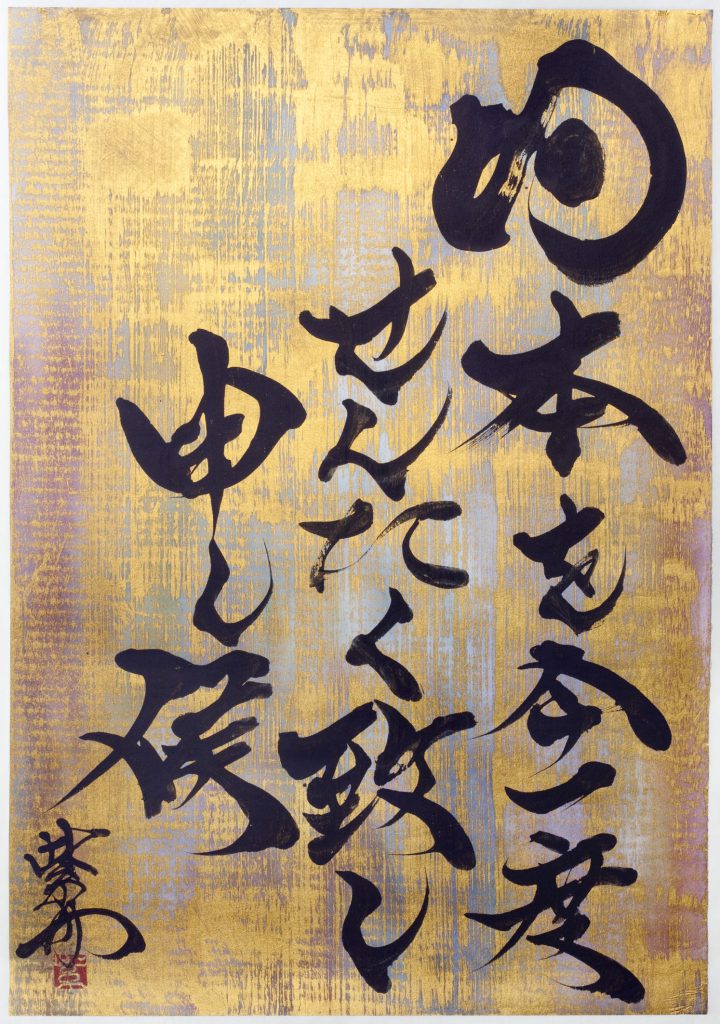 日本を今一度
せんたく致し
申し候
紫舟